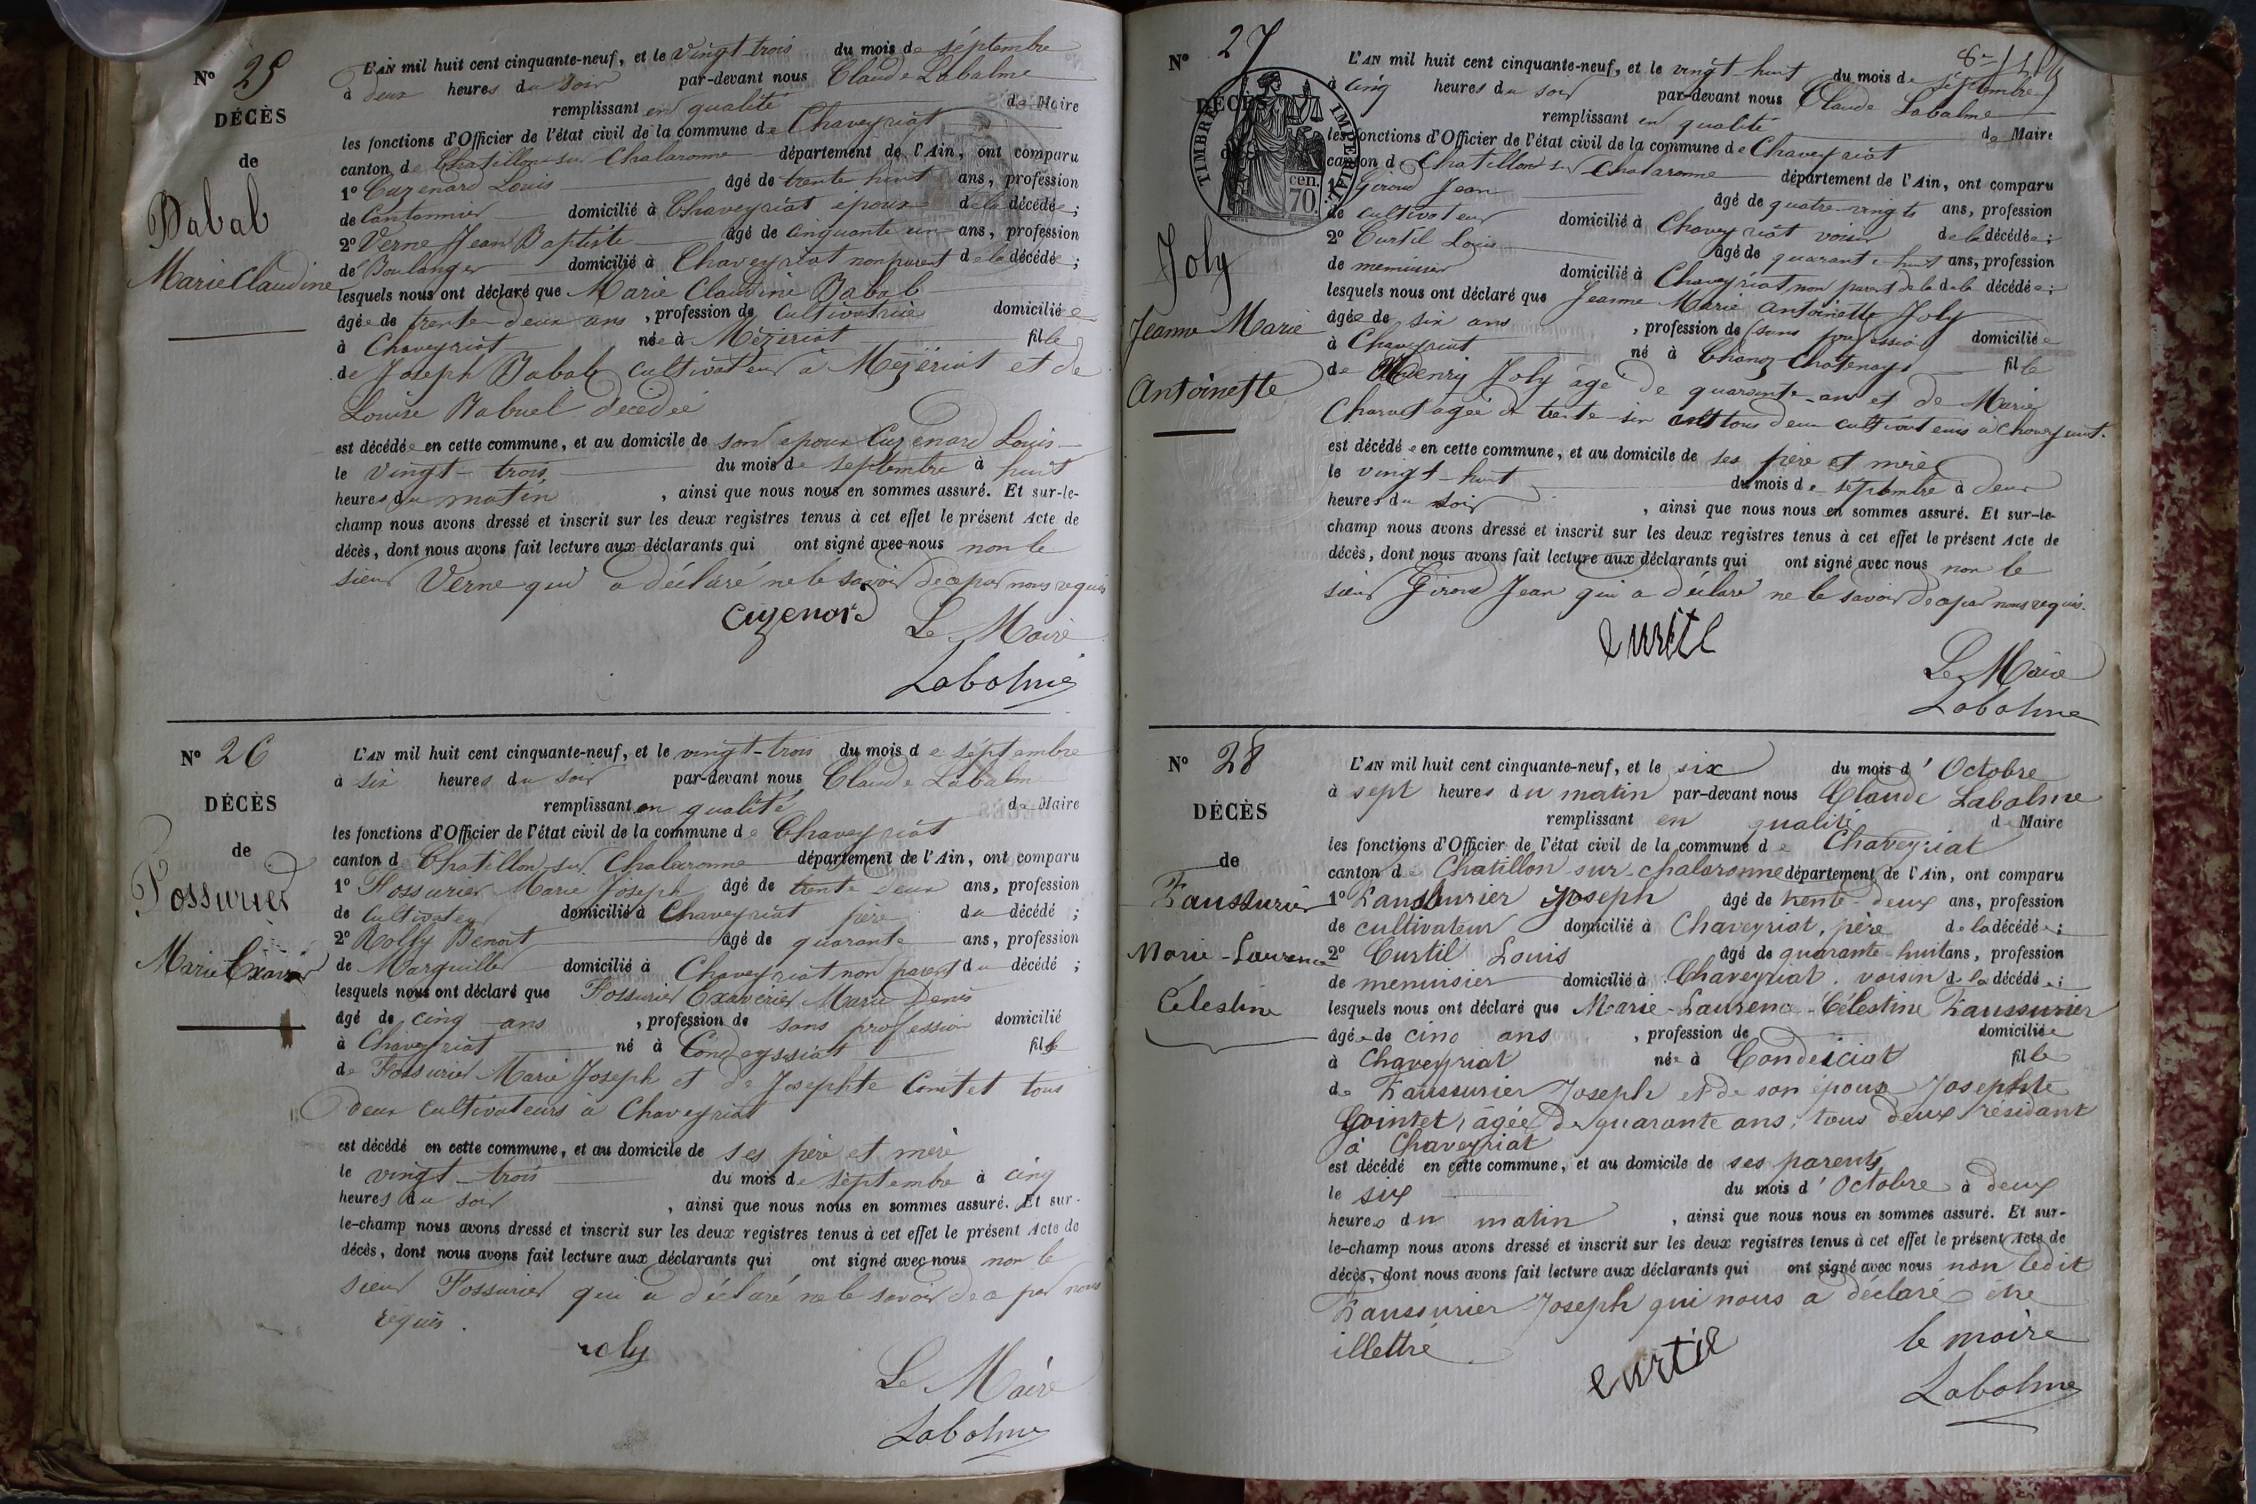 N° 25
DÉCÈS
de
Babab
Marie Claudine
L'AN mil huit cent cinquante-neuf, et le vingt trois du mois de séptembre
à deux heures du soir par-devant nous Claude Labalme
remplissant en qualité de Maire
les fonctions d'Officier de l'état civil de la commune de Chaveyriat
canton de Chatillon sur Chalaronne département de l'Ain, ont comparu
1° Cuzenard Louis âgé de trente huit ans, profession
de Cantonnier domicilié à Chaveyriat epoux de la décédée ;
2° Verne Jean Baptiste âgé de cinquante un ans, profession
de Boulanger domicilié à Chaveyriat non parent de la décédée ;
lesquels nous ont déclaré que Marie Claudine Babab
âgée de trente deux ans , profession de Cultivatrice domiciliée
à Chaveyriat née à Mézériat fille
de Joseph Babab cultivateur à Mezériat et de
Louise Babuel décédée
est décédée en cette commune, et au domicile de son epoux Cuzenard Louis
le vingt-trois du mois de septembre à huit
heures du matin , ainsi que nous nous en sommes assuré. Et sur-le-
champ nous avons dressé et inscrit sur les deux registres tenus à cet effet le présent Acte de
décès, dont nous avons fait lecture aux déclarants qui ont signé avec nous non le
sieur Verne qui a déclaré ne le savoir de ce par nous requis
Cuzenard Le Maire
Labalme
N° 26
DÉCÈS
de
Fossurier
Marie Exavier
L'AN mil huit cent cinquante-neuf, et le vingt-trois du mois de séptembre
à six heures du soir par-devant nous Claude Labalme
remplissant en qualité de Maire
les fonctions d'Officier de l'état civil de la commune de Chaveyriat
canton de Chatillon sur Chalaronne département de l'Ain, ont comparu
1° Fossurier Marie Joseph âgé de trente deux ans, profession
de Cultivateur domicilié à Chaveyriat père du décédé ;
2° Rolly Benoit âgé de quarante ans, profession
de Marguiller domicilié à Chaveyriat non parent du décédé ;
lesquels nous ont déclaré que Fossurier Exaverier Marie Denis
âgé de cinq ans , profession de sans profession domicilié
à Chaveyriat né à Condeyssiat fils
de Fossurier Marie Joseph et de Josephte Comtet tous
deux cultivateurs à Chaveyriat
est décédé en cette commune, et au domicile de ses père et mère
le vingt-trois du mois de séptembre à cinq
heures du soir , ainsi que nous nous en sommes assuré. Et sur-
le-champ nous avons dressé et inscrit sur les deux registres tenus à cet effet le présent Acte de
décès, dont nous avons fait lecture aux déclarants qui ont signé avec nous non le
sieur Fossurier qui a déclaré ne le savoir de ce par nous
requis.
roly
Le Maire
Labalme
N° 27
DÉCÈS
de
TIMBRE IMPERIAL
cen. 70.
Joly
Jeanne Marie
Antoinette
L'AN mil huit cent cinquante-neuf, et le vingt-huit du mois de séptembre
à cinq heures du soir par-devant nous Claude Labalme
remplissant en qualité de Maire
les fonctions d'Officier de l'état civil de la commune de Chaveyriat
canton de Chatillon sur Chalaronne département de l'Ain, ont comparu
1° Giroud Jean âgé de quatre-vingts ans, profession
de cultivateur domicilié à Chaveyriat voisin de la décédée ;
2° Curtil Louis âgé de quarante-huit ans, profession
de menuisier domicilié à Chaveyriat non parent de la de la décédée ;
lesquels nous ont déclaré que Jeanne Marie Antoinette Joly
âgée de six ans , profession de sans profession domiciliée
à Chaveyriat né à Chanoz Chatenay fille
de Henry Joly âgé de quarante-an et de Marie
Charvet agée de trente-six tous deux cultivateurs à Chaveyriat.
est décédée en cette commune, et au domicile de ses père et mère
le vingt-huit du mois de septembre à deux
heures du soir , ainsi que nous nous en sommes assuré. Et sur-le-
champ nous avons dressé et inscrit sur les deux registres tenus à cet effet le présent Acte de
décès, dont nous avons fait lecture aux déclarants qui ont signé avec nous non le
sieur Giroud Jean qui a déclaré ne le savoir de ce par nous requis.
curtil
Le Maire
Labalme
N° 28
DÉCÈS
de
Faussurier
Marie-Laurence
Célestine
L'AN mil huit cent cinquante-neuf, et le six du mois d'Octobre
à sept heures du matin par-devant nous Claude Labalme
remplissant en qualité d Maire
les fonctions d'Officier de l'état civil de la commune de Chaveyriat
canton de Chatillon sur-chalaronne département de l'Ain, ont comparu
1° Faussurier Joseph âgé de trente-deux ans, profession
de cultivateur domicilié à Chaveyriat, père de la décédée ;
2° Curtil Louis âgé de quarante-huit ans, profession
de menuisier domicilié à Chaveyriat, voisin de la décédée ;
lesquels nous ont déclaré que Marie-Laurence-Célestine Faussurier
âgée de cinq ans , profession de domiciliée
à Chaveyriat née à Condeiciat fille
de Faussurier Joseph et de son épouse Josephte
Gointet, âgée de quarante ans, tous deux résidant
à Chaveyriat
est décédé en cette commune, et au domicile de ses parents
le six du mois d'Octobre à deux
heures du matin , ainsi que nous nous en sommes assuré. Et sur-
le-champ nous avons dressé et inscrit sur les deux registres tenus à cet effet le présent Acte de
décès, dont nous avons fait lecture aux déclarants qui ont signé avec nous non ledit
Faussurier Joseph qui nous a déclaré être
illettré
curtil
le maire
Labalme